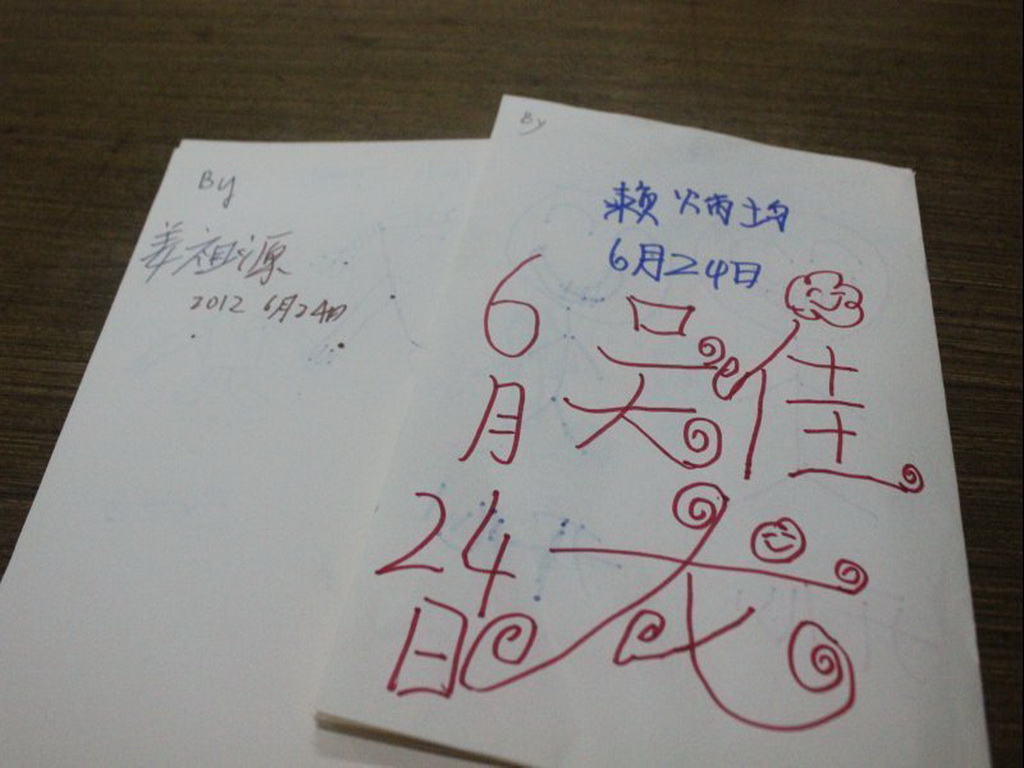 By
姜祖源
2012 6月24日
By
賴炳均
6月24日
吳佳
6月24日